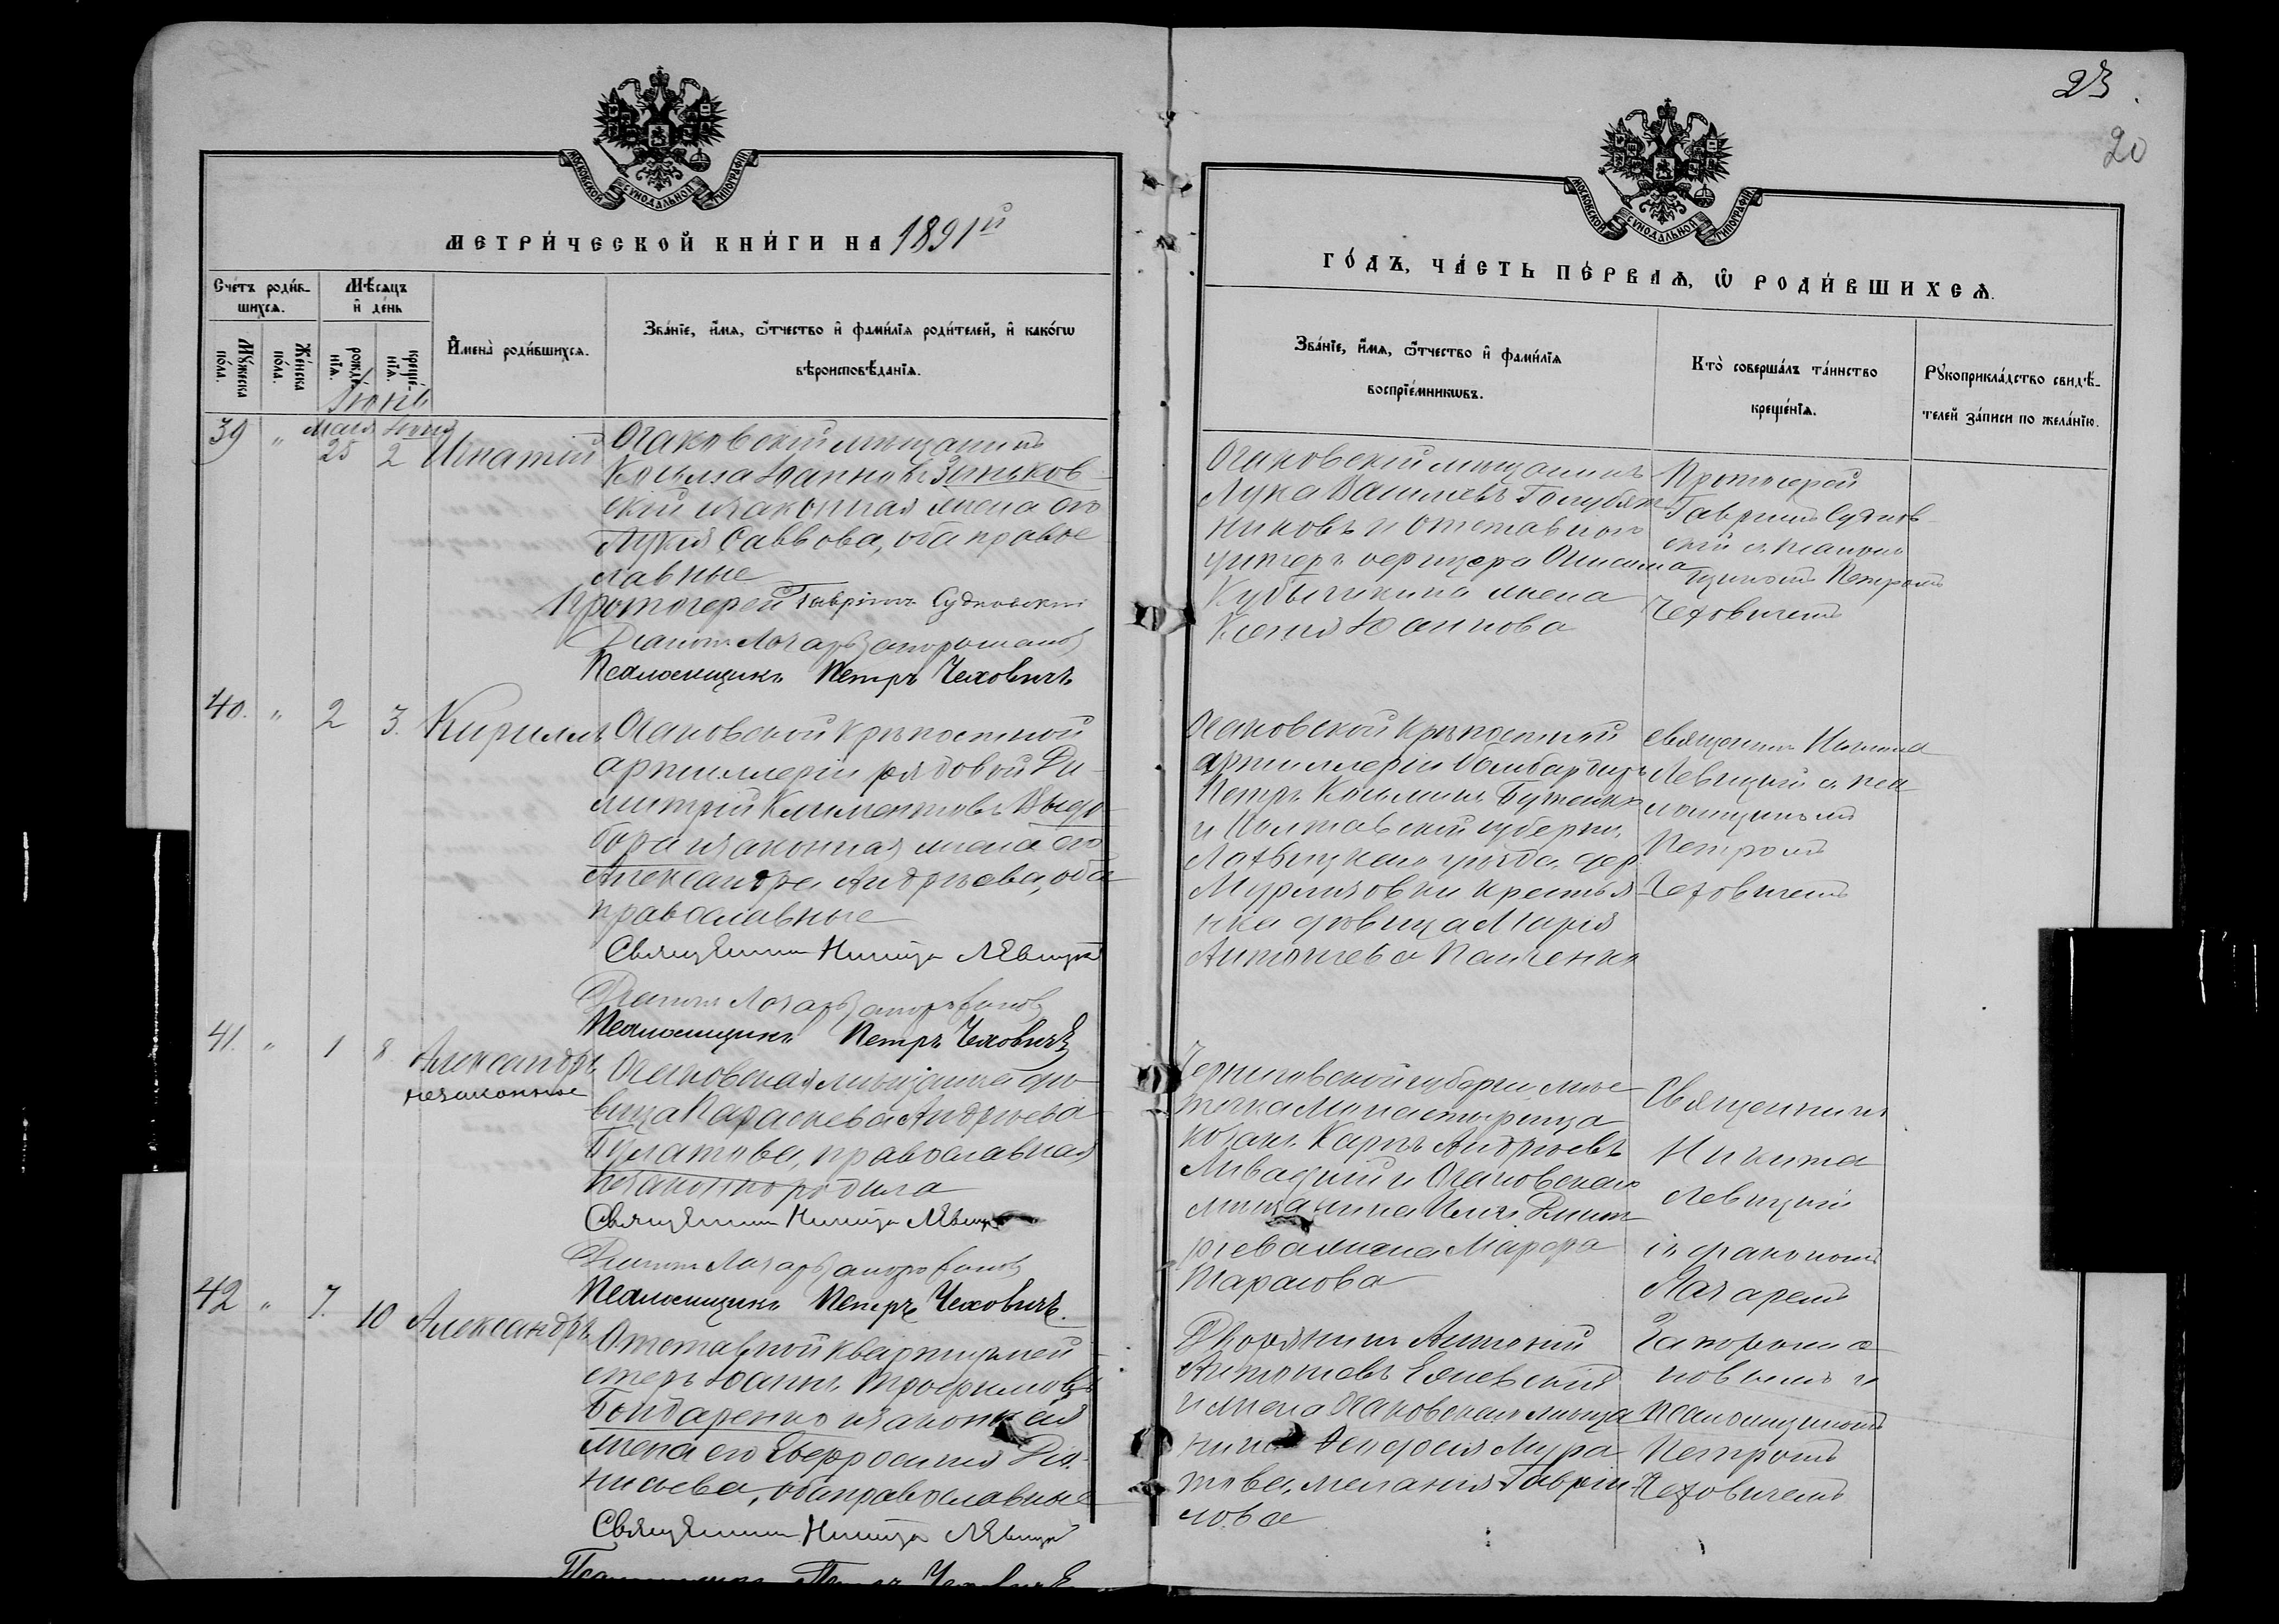 23.
20
МОСКОВСКОЙ СѴНОДАЛЬНОЙ ТИПОГРАФІИ
МЕТРИ́ЧЕСКОЙ КНИ́ГИ НА 1891й
Сче́тъ роди́в-
шихсѧ.
Мѣ́сѧцъ
и҆ де́нь
Мꙋ́жеска
по́ла.
Же́нска
по́ла.
рожде́-
нїѧ.
креще́-
нїѧ.
И҆мена̀ роди́вшихсѧ.
Зва́нїе, и҆́мѧ, ѻ҆́тчество и҆ фами́лїѧ роди́телей, и҆ како́гѡ
вѣроисповѣ́данїѧ.
Іюнь
39 " Мая 25 Іюня 2 Игнатій
Очаковскій мѣщанинъ
Косьма Іоанновъ Зеньков-
скій и законная жена его
Лукія Саввова, оба правос
лавные
Протоіерей Гавріилъ Судковскій
Діаконъ Лазарь Запорожановъ
Псаломщикъ Петръ Чеховичъ
40. " 2 3. Кириллъ
Очаковской крѣпостной
артиллеріи рядовой Ди-
митрій Климентовъ
и законная жена его
Александра Андреева, оба
православные
Священникъ Никита Левицкій
Діаконъ Лазарь Запорожановъ
Псаломщикъ Петръ Чеховичъ
41. " 1 8 Александръ
незаконное
Очаковская мѣщанка дѣ-
вица Параскева Андреева
Булатова, православная
незаконно родила
Священникъ Никита Левицкій
Діаконъ Лазарь Запорожановъ
Псаломщикъ Петръ Чеховичъ.
42 " 7. 10 Александръ
Отставной квартирмей
стеръ Іоаннъ Трофимовъ
Бондаренко и законная
жена его Евфросинія Діо-
нисіева, оба православные
Священникъ Никита Левицкій
Псаломщикъ Петръ Чеховичъ
МОСКОВСКОЙ СѴНОДАЛЬНОЙ ТИПОГРАФІИ
ГО́ДЪ, ЧА́СТЬ ПЕ́РВАѦ, Ѡ҆ РОДИ́ВШИХСѦ.
Зва́нїе, и҆́мѧ, ѻ҆́тчество и҆ фами́лїѧ
воспрїе́мникѡвъ.
Кто̀ соверша́лъ та́инство
креще́нїѧ.
Рꙋкоприкла́дство свидѣ́-
телей за́писи по жела́нїю.
Очаковскій мѣщанинъ
Лука Васильевъ Голубят
никовъ и отставного
унтеръ офицера
жена
Ксенія Іоаннова
Протоіерей
Гавріилъ Судков
скій съ псалом
щикомъ Петромъ
Чеховичемъ
Очаковской крѣпостной
артиллеріи бомбардиръ
Петръ Косьминъ Бутенко
и Полтавской губерніи,
Лохвицкаго уѣзда, дер.
крестья
нка дѣвица Марія
Антоніева Панченко
Священникъ Никита
Левицкій съ пса
ломщикомъ
Петромъ
Чеховичемъ
Черниговской губерніи мѣс
течка Монастырища
козакъ Карпъ Андреевъ
Ливадный и Очаковскаго
мѣщанина Ильи Димит
ріева жена Марфа
Тарасова
Священникъ
Никита
Левицкій
съ діакономъ
Лазаремъ
Запорожа
новымъ и
псаломщикомъ
Петромъ
Чеховичемъ
Дворянинъ Антоній
Антоніевъ
и жена Очаковскаго мѣща
нина Мура
това, Меланія Гаврии
лова